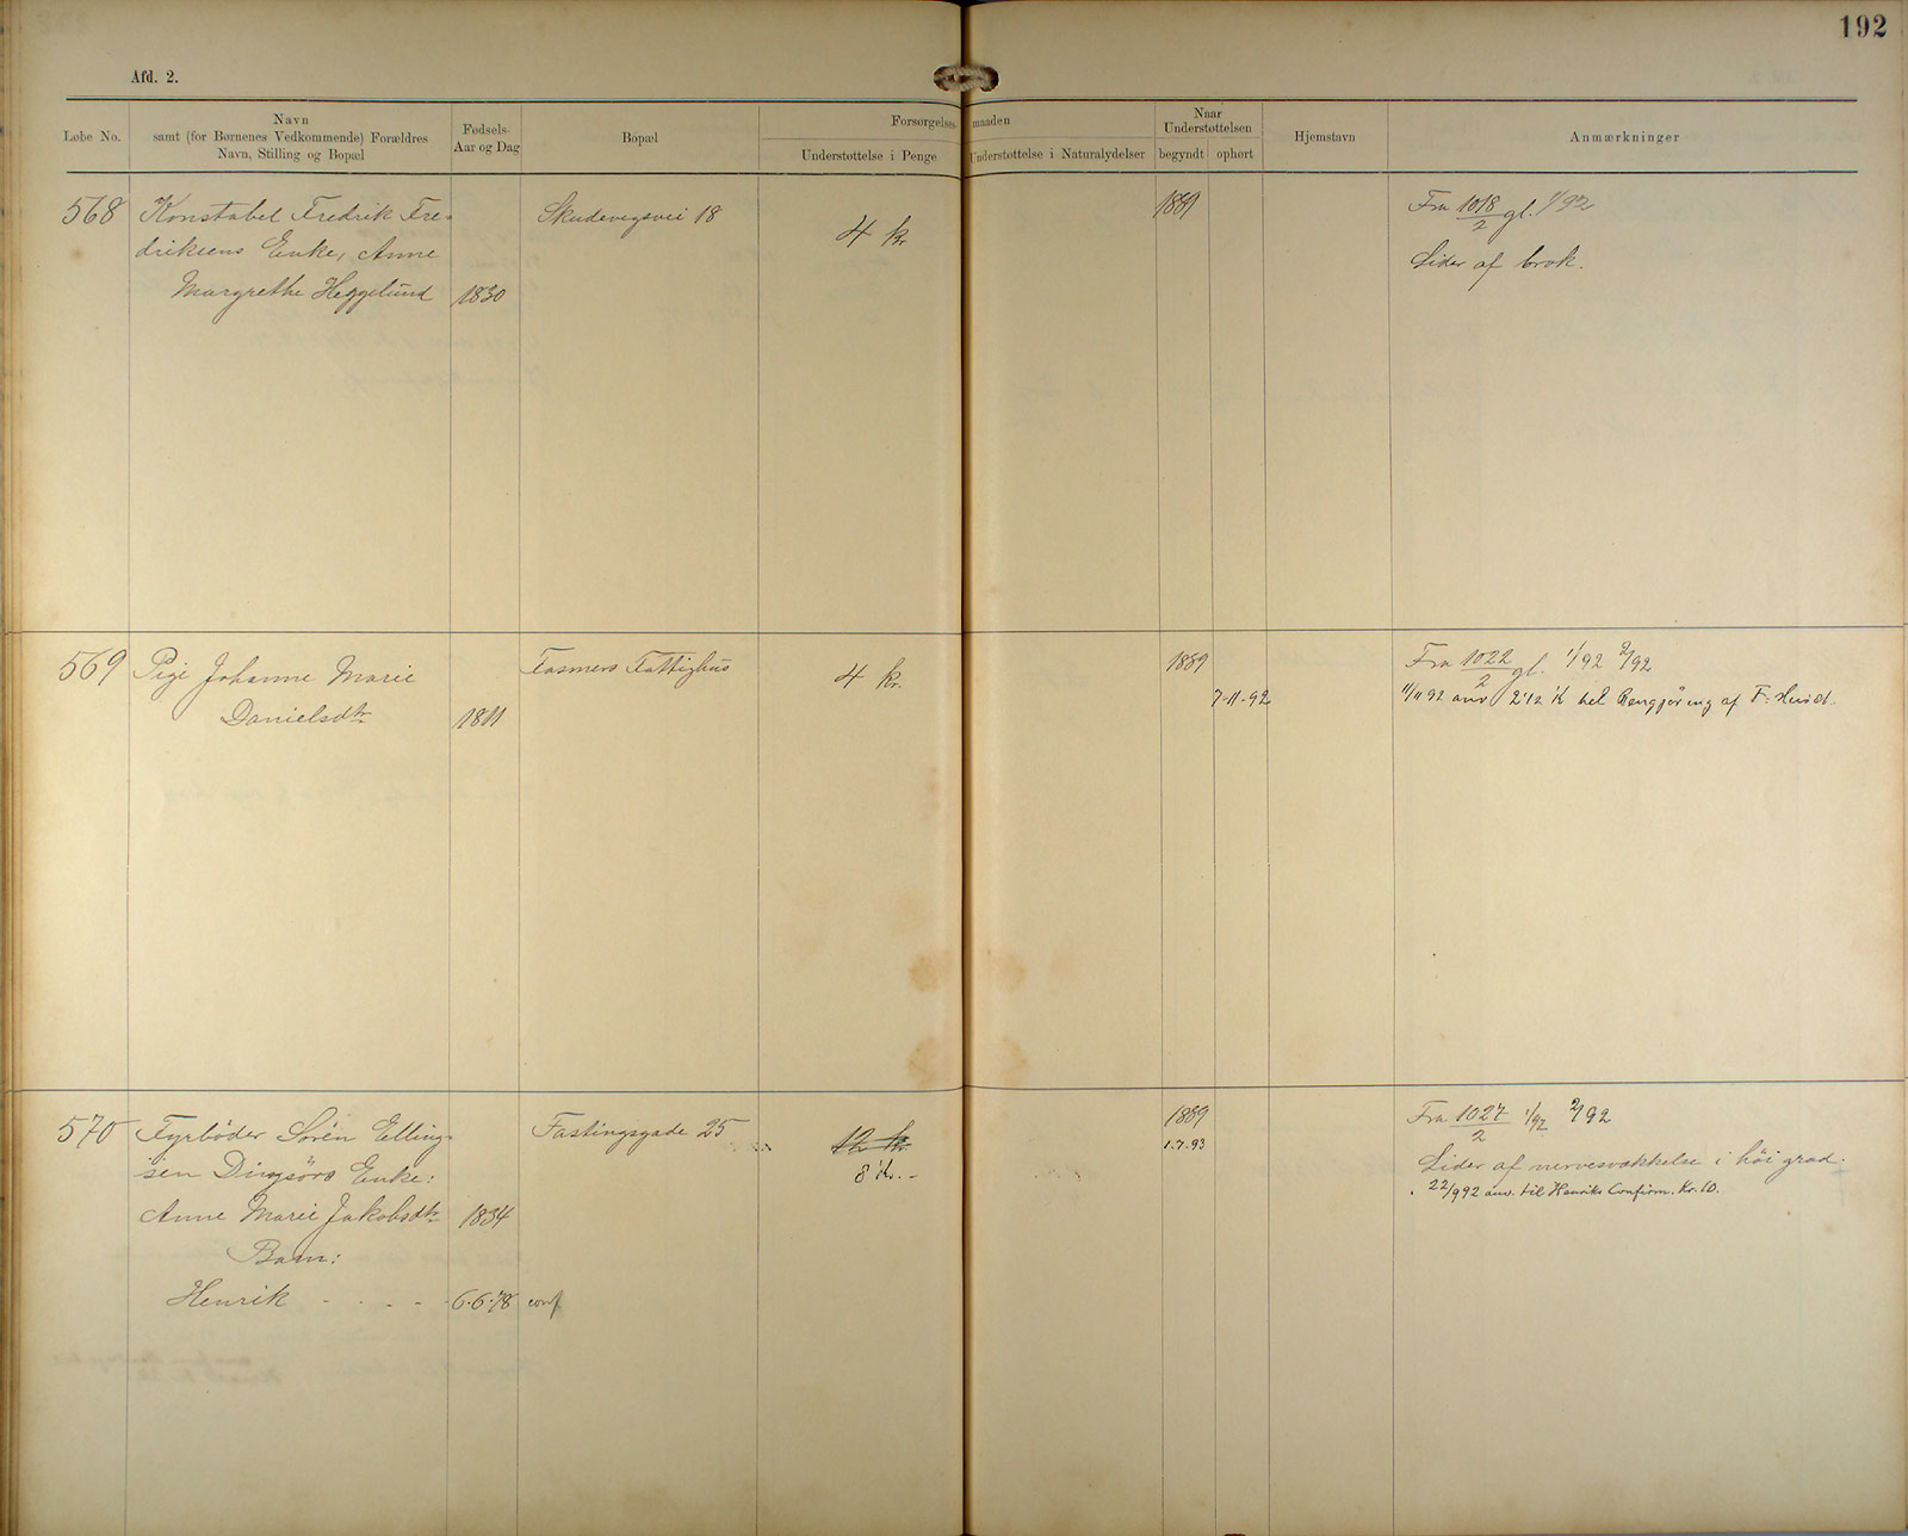 192
Afd. 2.
Løbe No.
Navn
samt (for Børnenes Vedkommende) Forældres
Navn, Stilling og Bopæl
Fødsels-
Aar og Dag
Bopæl
Forsørgelsesmaaden
Understøttelse i Penge
Understøttelse i Naturalydelser
Naar
Understøttelsen
begyndt
ophørt
Hjemstavn
Anmærkninger
568
Konstabel Fredrik Fre-
driksens Enke, Anne
Margrethe Heggelund
1830
Skudevigsvei 18
4 kr
1889
Fra 1018/2 gl. 1/92
Lider af brok.
569
Pige Johanne Marie
Danielsdtr
1811
Fasmers Fattighus
4 kr.
1889
7-11-92
Fra 1022/2 gl. 1/92 2/92
11/11 92 anv 2 1/2 K bel Rengjöring af F: Huset.
570
Fyrböder Sörén Elling-
sen Dingsörs Enke:
Anne Marie Jakobsdtr
1834
Barn:
Henrik - - - - -
6-6-78
conf
Fastingsgade 25
12 kr.
8 Kr. -
1889
1.7.93
Fra 1027/2 1/92 2/92
Lider af nervesvækkelse i höi grad.
22/9 92 anv. til Henriks Confirm. Kr. 10.